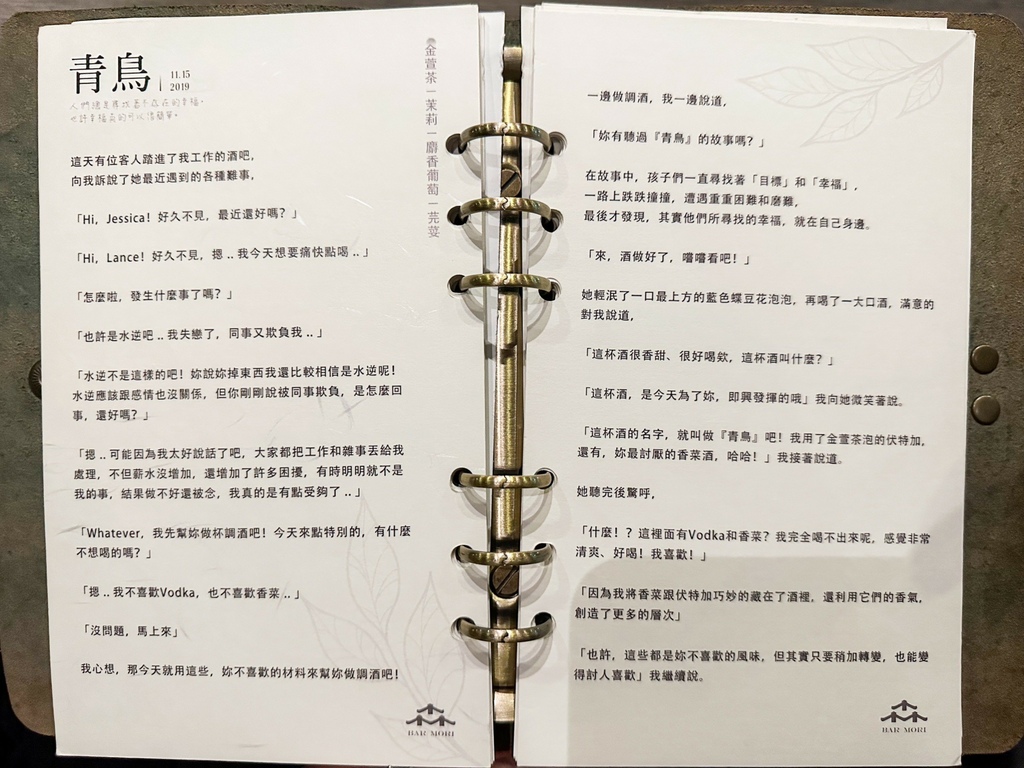 青鳥
11.15
2019
人們總是尋找著不存在的幸福。
也許幸福真的可以很簡單。
金萱茶|茉莉|麝香葡萄|芫荽
這天有位客人踏進了我工作的酒吧，
向我訴說了她最近遇到的各種難事，
「Hi, Jessica！好久不見，最近還好嗎？」
「Hi, Lance！好久不見，摁 .. 我今天想要痛快點喝 .. 」
「怎麼啦，發生什麼事了嗎？」
「也許是水逆吧 .. 我失戀了，同事又欺負我 .. 」
「水逆不是這樣的吧！妳說妳掉東西我還比較相信是水逆呢！
水逆應該跟感情也沒關係，但你剛剛說被同事欺負，是怎麼回
事，還好嗎？」
「摁 .. 可能因為我太好說話了吧，大家都把工作和雜事丟給我
處理，不但薪水沒增加，還增加了許多困擾，有時明明就不是
我的事，結果做不好還被念，我真的是有點受夠了 .. 」
「Whatever，我先幫妳做杯調酒吧！今天來點特別的，有什麼
不想喝的嗎？」
「摁 .. 我不喜歡Vodka，也不喜歡香菜 .. 」
「沒問題，馬上來」
我心想，那今天就用這些，妳不喜歡的材料來幫妳做調酒吧！
BAR MORI
一邊做調酒，我一邊說道，
「妳有聽過『青鳥』的故事嗎？」
在故事中，孩子們一直尋找著「目標」和「幸福」，
一路上跌跌撞撞，遭遇重重困難和磨難，
最後才發現，其實他們所尋找的幸福，就在自己身邊。
「來，酒做好了，嚐嚐看吧！」
她輕泯了一口最上方的藍色蝶豆花泡泡，再喝了一大口酒，滿意的
對我說道，
「這杯酒很香甜、很好喝欸，這杯酒叫什麼？」
「這杯酒，是今天為了妳，即興發揮的哦」我向她微笑著說。
「這杯酒的名字，就叫做『青鳥』吧！我用了金萱茶泡的伏特加，
還有，妳最討厭的香菜酒，哈哈！」我接著說道。
她聽完後驚呼，
「什麼！？這裡面有Vodka和香菜？我完全喝不出來呢，感覺非常
清爽、好喝！我喜歡！」
「因為我將香菜跟伏特加巧妙的藏在了酒裡。還利用它們的香氣，
創造了更多的層次」
「也許，這些都是妳不喜歡的風味，但其實只要稍加轉變，也能變
得討人喜歡」我繼續說。
BAR MORI